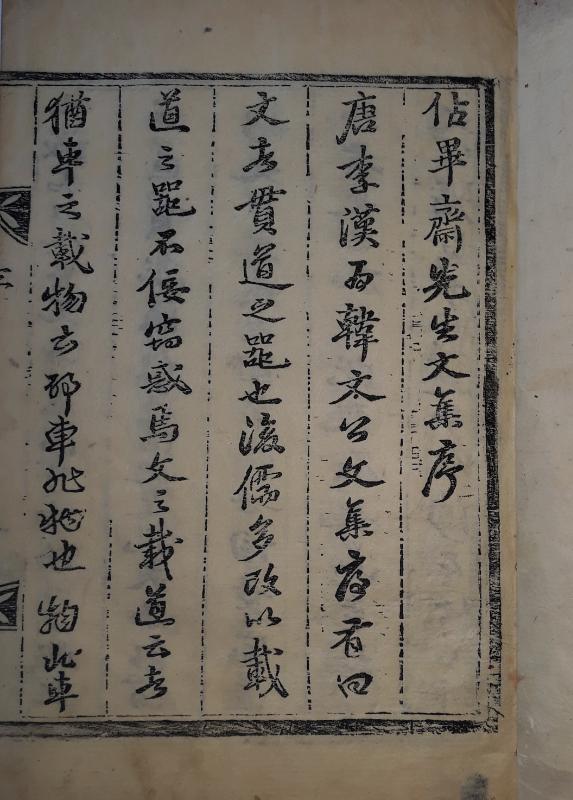 佔畢齋先生文集序
唐李漢为韓文公文集序曰
文者貫道之器也後儒多改以載
道之器不佞窃惑焉文之載道云者
猶車之載物云耶車非物也物非車